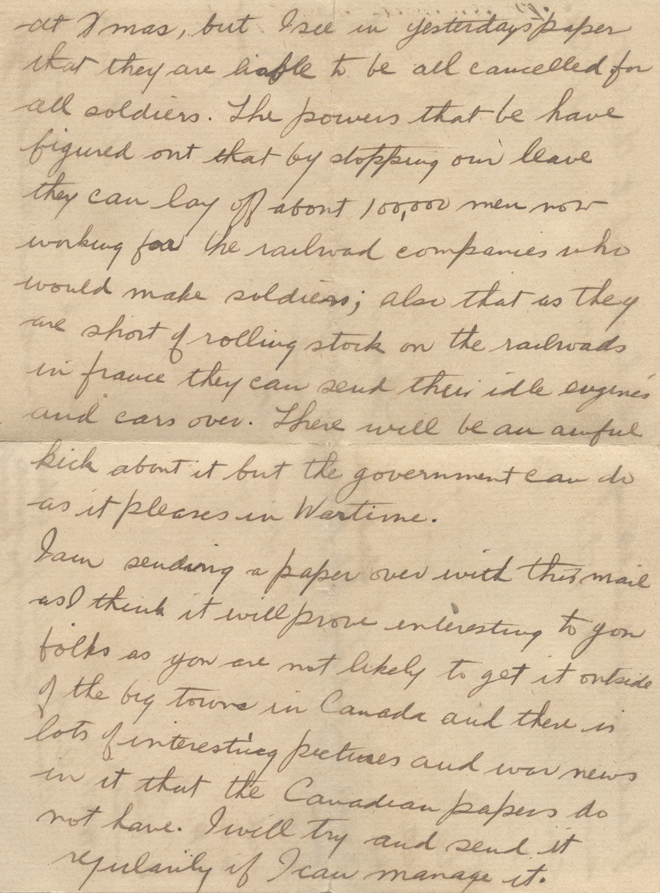 at Xmas, but I see in yesterdays paper
that they are liable to be all cancelled for
all soldiers. The powers that be have
figured out that by stopping our leave
they can lay off about 100,000 men now
working for the railroad companies who
would make soldiers; also that as they
are short of rolling stock on the railroads
in france they can send their idle engines
and cars over. There will be an awful
kick about it but the government can do
as it pleases in Wartime.
I am sending a paper over with this mail
as I think it will prove interesting to you
folks as you are not likely to get it outside
of the big towns in Canada and there is
lots of interesting pictures and war news
in it that the Canadian papers do
not have. I will try and send it
regularily if I can manage it.